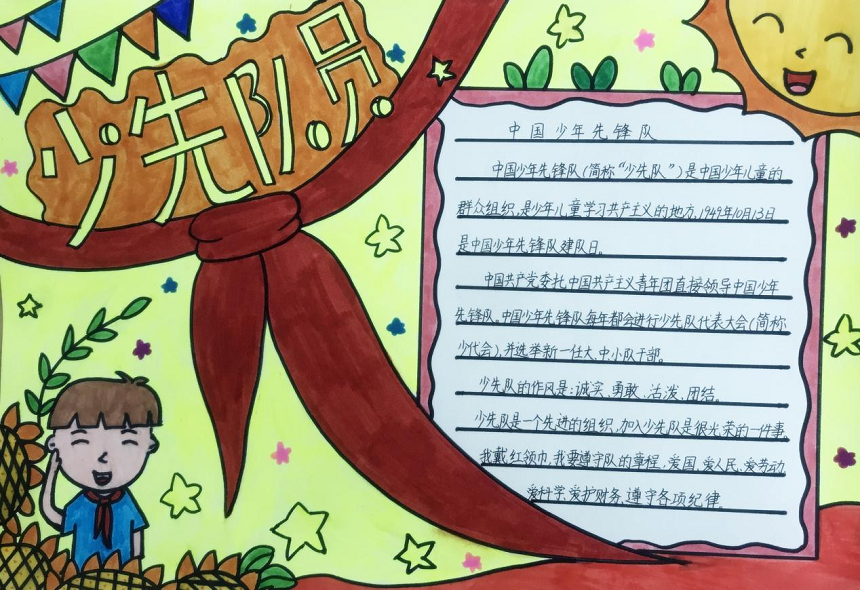 少先队员
中国少年先锋队
中国少年先锋队(简称“少先队”)是中国少年儿童的
群众组织,是少年儿童学习共产主义的地方,1949年10月13日
是中国少年先锋队建队日。
中国共产党委托中国共产主义青年团直接领导中国少年
先锋队。中国少年先锋队每年都会进行少先队代表大会(简称
少代会),并选举新一任大、中小队干部。
少先队的作风是:诚实、勇敢、活泼、团结。
少先队是一个先进的组织,加入少先队是很光荣的一件事。
我戴红领巾,我要遵守队的章程,爱国、爱人民、爱劳动
爱科学、爱护财务、遵守各项纪律。